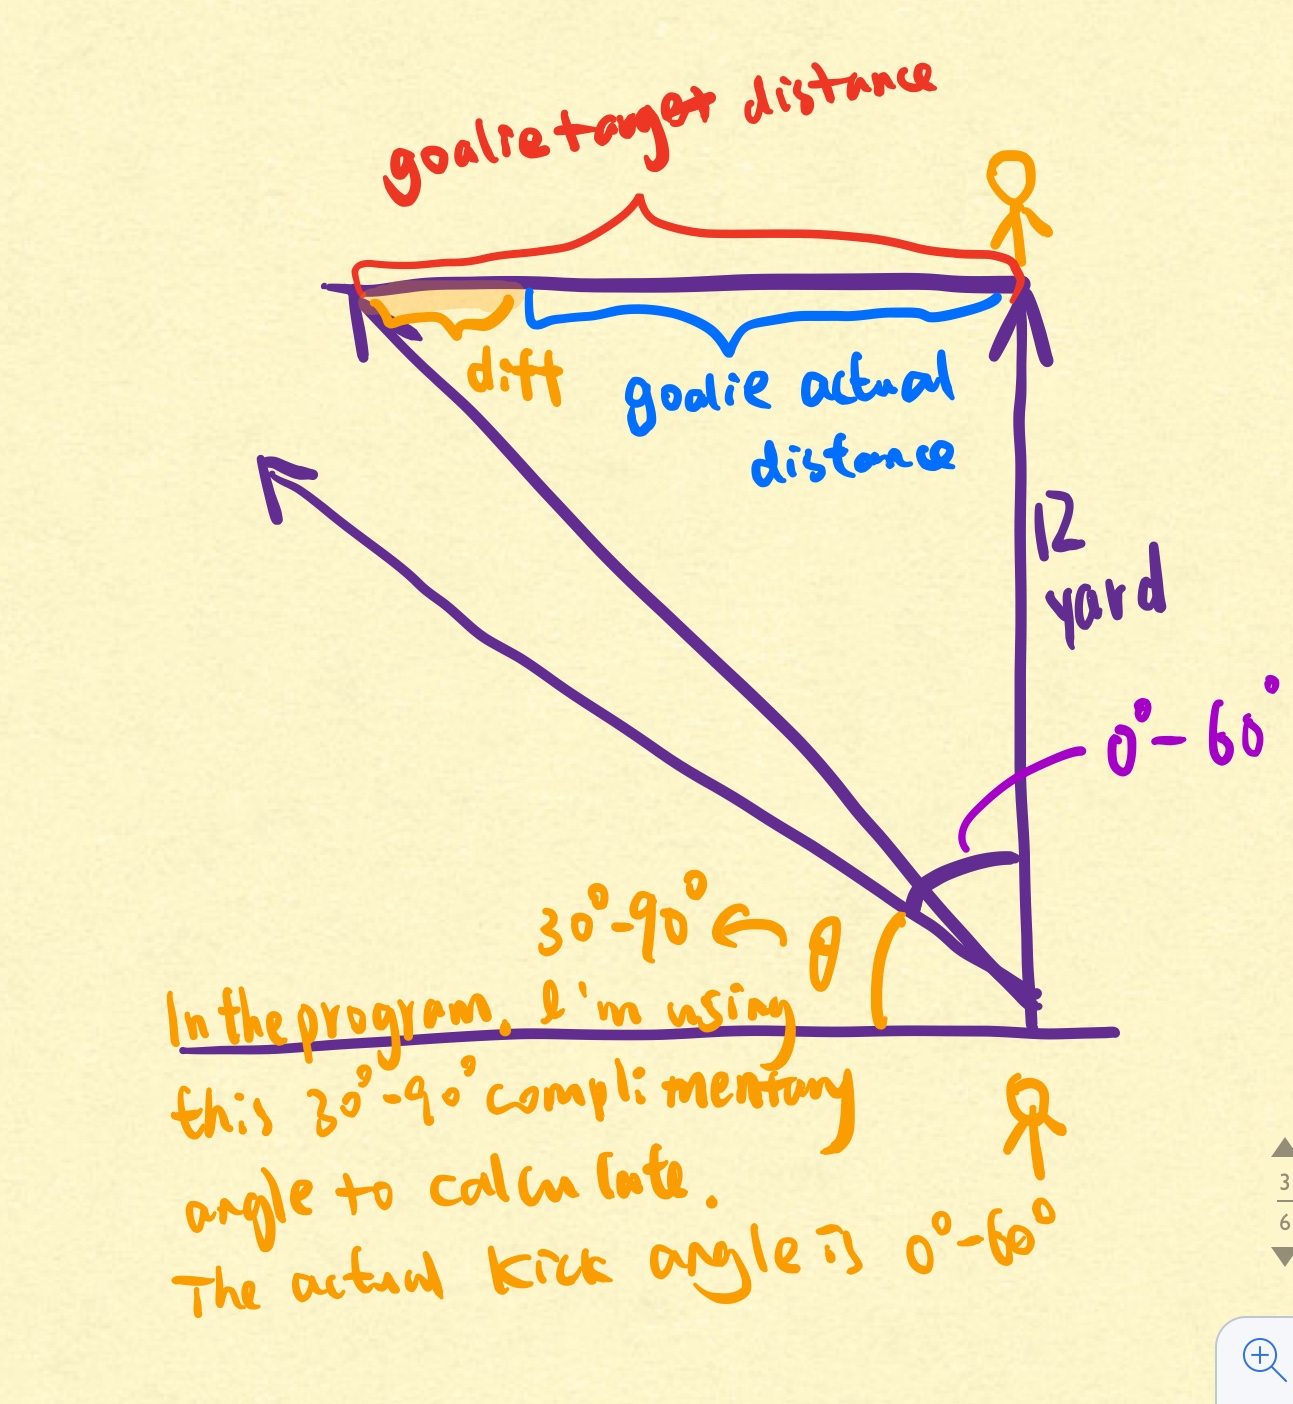 goalie target distance
diff
goalie actual
distance
12
yard
0°-60°
30°-90° ← θ
In the program, I'm using
this 30°-90° complimentary
angle to calculate.
The actual kick angle is 0°-60°
3
6